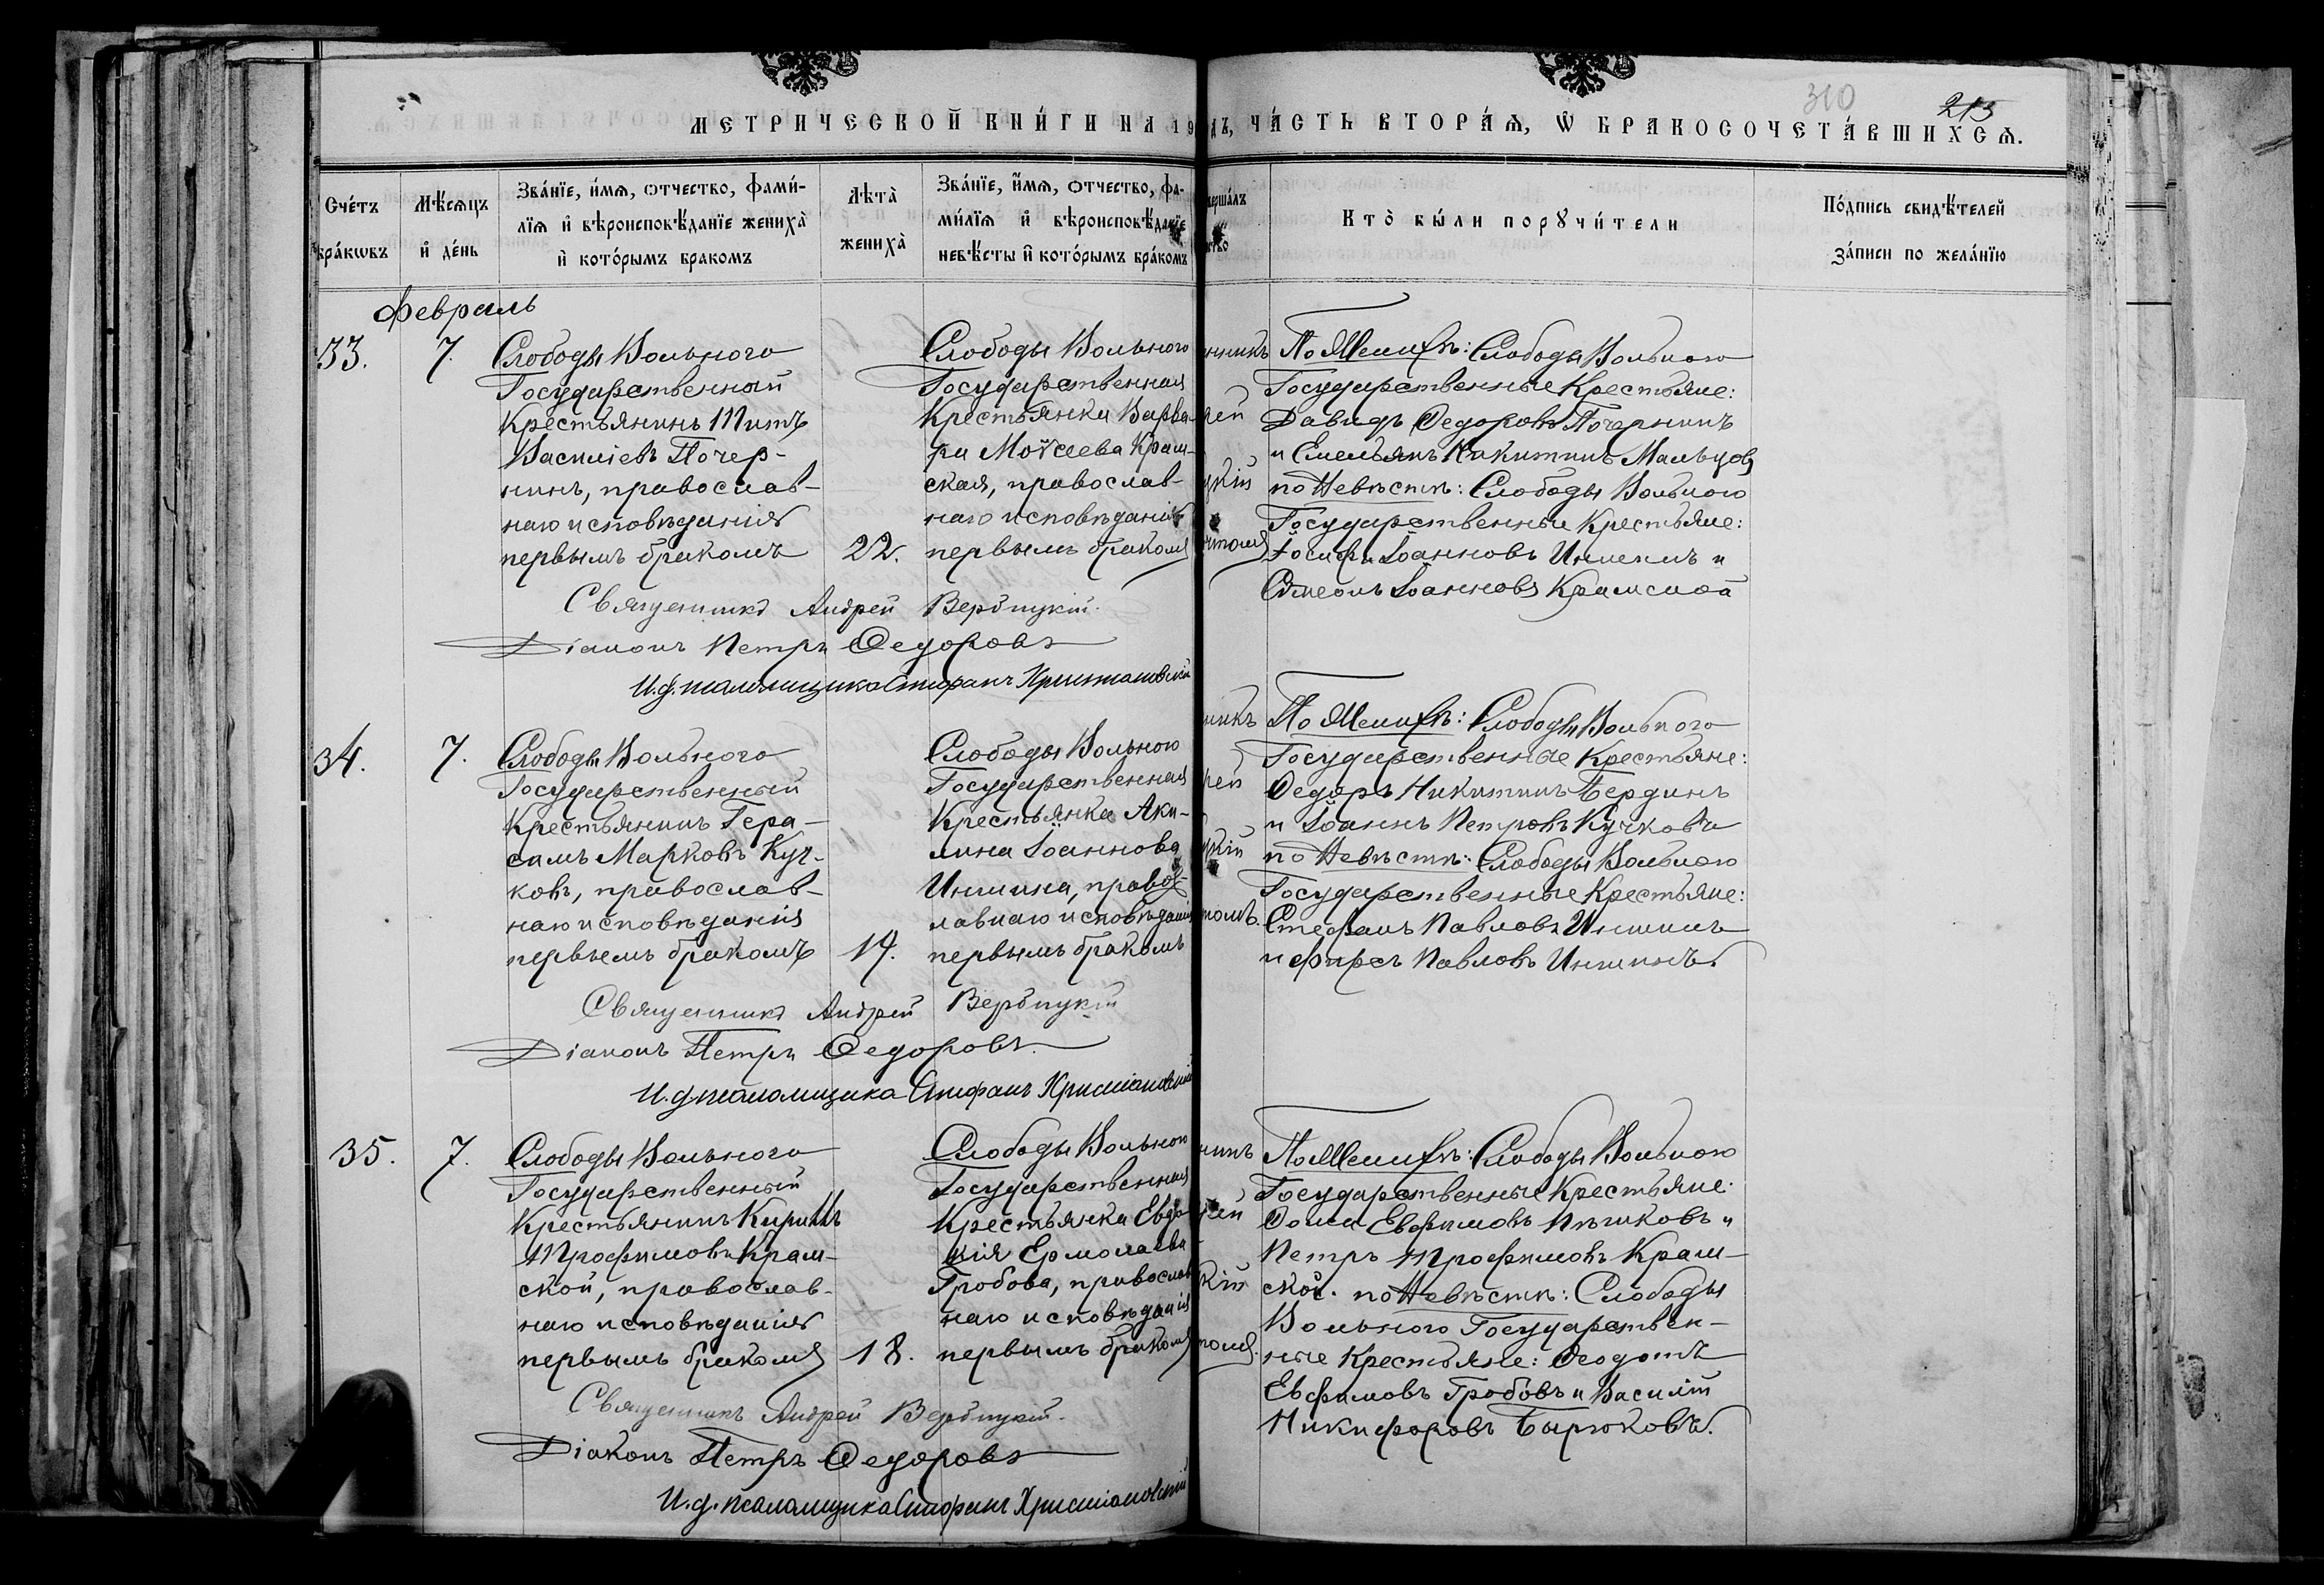 310
213
МЕТРИЧЕСКОЙ КНИ́ГИ НА 19 ДЪ, ЧА́СТЬ ВТОРА́Ѧ, Ѡ҆ БРАКОСОЧЕТА́ВШИХСѦ.
Сче́тъ бра́кѡвъ
Мѣ́сѧцъ и҆ де́нь
Зва́нїе, и҆́мѧ, ѻтчество, фами́-
лїѧ и҆ вѣроисповѣ́данїе жениха̀
и҆ кото́рымъ бракомъ
Лѣта̀ жениха̀
Зва́нїе, и҆́мѧ, ѻтчество, фа-
ми́лїѧ и҆ вѣроисповѣ́данїе
невѣ́сты и҆ кото́рымъ бра́комъ
верша́лъ
нство
Кто̀ бы́ли порꙋчи́тели
По́дпись свидѣ́телей
за́писи по жела́нїю
Февраль
33.
7.
Слободы Вольного
Государственный
Крестьянинъ Титъ
Василіевъ Почер-
нинъ, православ-
наго исповѣданія
первымъ бракомъ
22.
Слободы Вольного
Государственная
КрестьянкаВарва-
ра Моѵсеева Крам-
ская, православ-
наго исповѣданія
первымъ бракомъ
нникъ
рей
цкій
стомъ
По Женихѣ: Слободы Вольного
Государственные Крестьяне:
Давидъ Ѳедоровъ Почернинъ
и Емельянъ Никитинъ Мальцовъ
по Невѣстѣ: Слободы Вольного
Государственные Крестьяне:
Іосифъ Іоанновъ Иншинъ и
Сѵмеонъ Іоанновъ Крамской
Священникъ Андрей Вербицкій.
Діаконъ Петръ Ѳедоровъ
И.д. псаломщика Стефанъ Христіановскій
34.
7.
Слободы Вольного
Государственный
Крестьянинъ Гера-
симъ Марковъ Куч-
ковъ, православ-
наго исповѣданія
первымъ бракомъ
19.
Слободы Вольного
Государственная
Крестьянка Аки-
лина Іоаннова
Иншина, правос-
лавнаго исповѣданія
первымъ бракомъ
никъ
рей
цкій
томъ.
По Женихѣ: Слободы Вольного
Государственные Крестьяне:
Ѳедоръ Никитинъ Бердинъ
и Іоаннъ Петровъ Кучковъ
по Невѣстѣ: Слободы Вольного
Государственные Крестьяне:
Стефанъ Павловъ Иншинъ
и Фирсъ Павловъ Иншинъ.
Священникъ Андрей Вербицкій
Діаконъ Петръ Ѳедоровъ.
И.д. псаломщика Стефанъ Христіановскій
35.
7.
Слободы Вольного
Государственный
Крестьянинъ Кириллъ
Трофимовъ Крам-
ской, православ-
наго исповѣданія
первымъ бракомъ
18.
Слободы Вольного
Государственная
Крестьянка Евдо-
кія Ермолаева
Гробова, православ-
наго исповѣданія
первымъ бракомъ
никъ
рей
кій
томъ.
По Женихѣ: Слободы Вольного
Государственные Крестьяне:
Ѳома Евфимовъ Пѣшковъ и
Петръ Трофимовъ Крам-
ской. по Невѣстѣ: Слободы
Вольного Государствен-
ные Крестьяне: Ѳеодотъ
Евфимовъ Гробовъ и Василій
Никифоровъ Бирюковъ.
Священникъ Андрей Вербицкій.
Діаконъ Петръ Ѳедоровъ
И.д. псаломщика Стефанъ Христіановскій